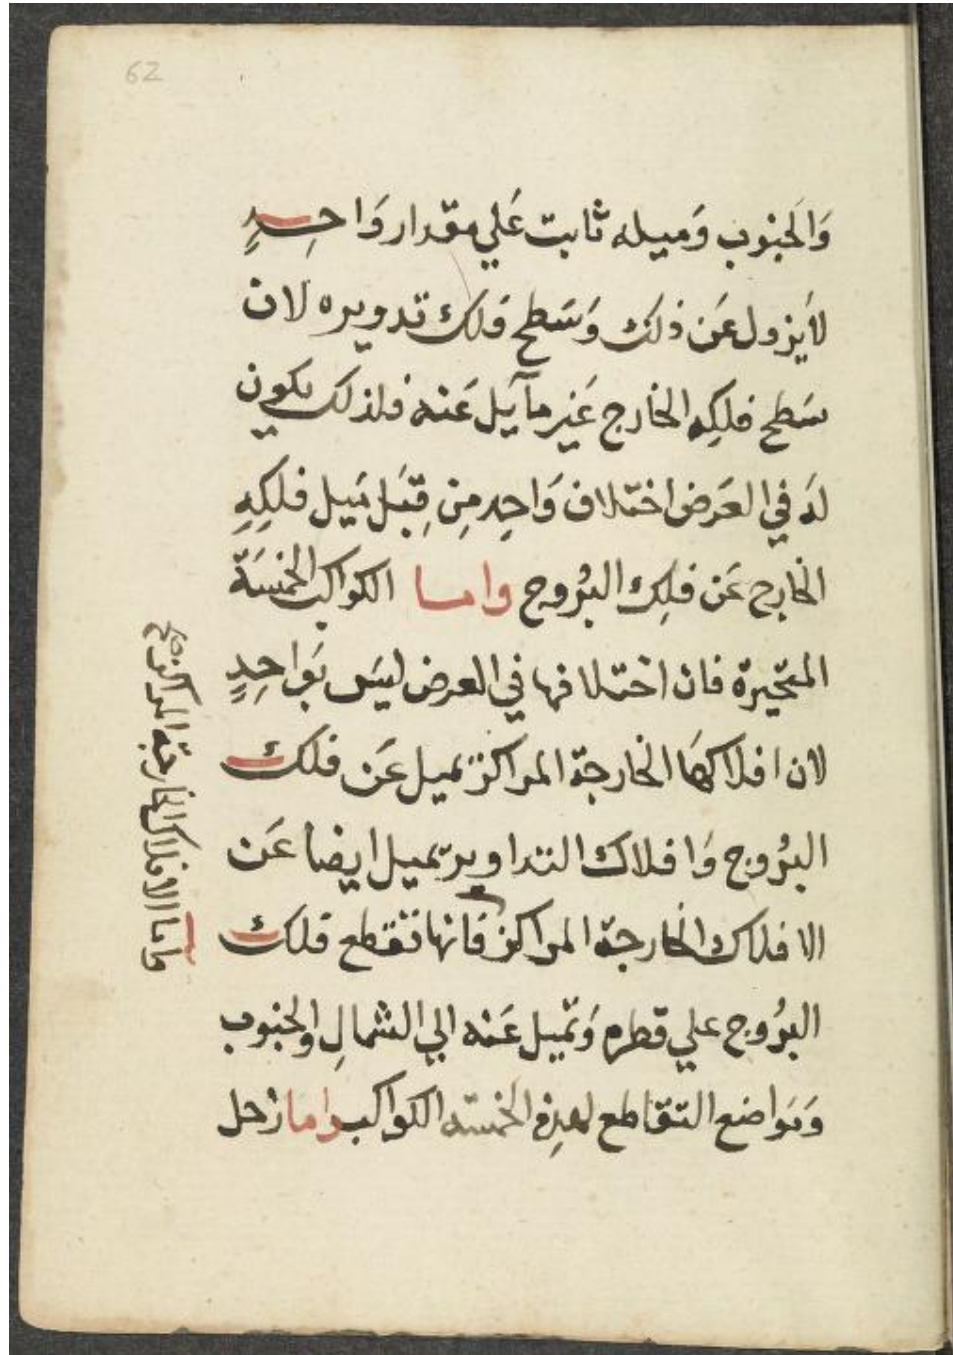 62
وَالجَنوب وَميله ثابت عَلي مقدار وَاحِدٍ
لاَيزول عَن ذلك وَسَطح فلك تدويره لان
سَطح فلكِه الخارج غَير مآيل عَنه فلذلك يكون
لَه في العَرض اختلاف وَاحِد مِن قِبَل مَيل فلكِهِ
الخارج عَن فلِك البُروج واما الكواكب الخمسَة
المتحيرة فان اختلافها في العرض ليَس بَواحِدٍ
لان افلاكهَا الخارجة المراكز تميل عَن فلك
البُروج وَافلاك التداوير تميل ايضا عَن
الافلاك الخارجة المراكز فَانها تقطع فلك
البرُوج علي قطره وَتميل عَنه الي الشمالِ والجنوب
وَمَواضع التقاطع لهذِه الخمسَه الكواكب واما زحل
فاما الافلاك الخارجة المراكز صح